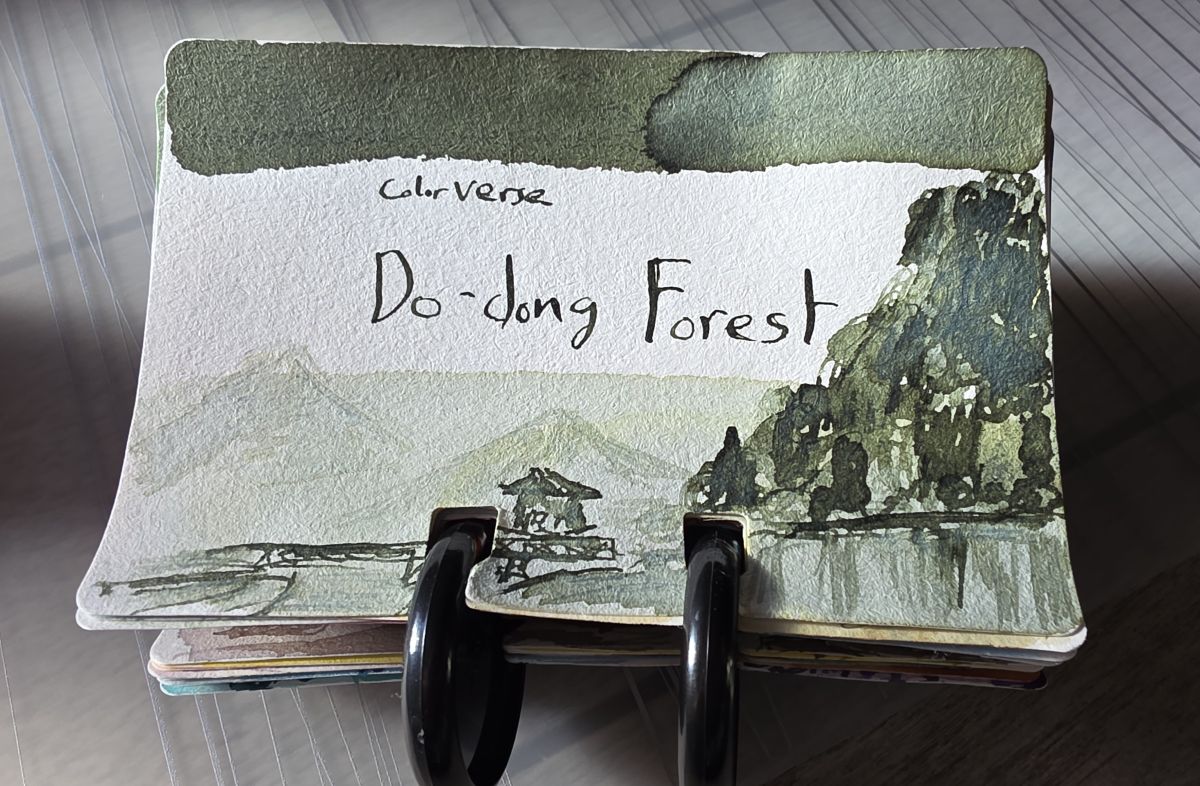 ColorVerse
Do-dong Forest